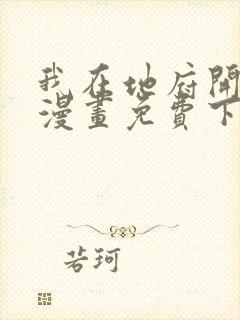 我在地府開
漫畫免費下
若珂